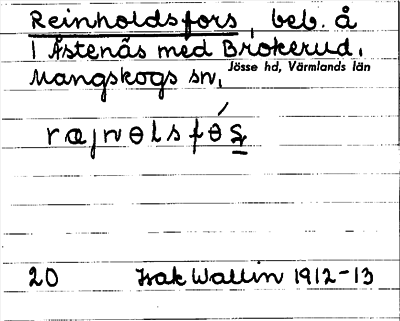 Reinholdsfors, beb. å
1 Åstenäs med Brokerud.
Mangskogs sn, Jösse hd, Värmlands län
ræjnɵlsfɵ́s̠
20 Isak Wallin 1912-13